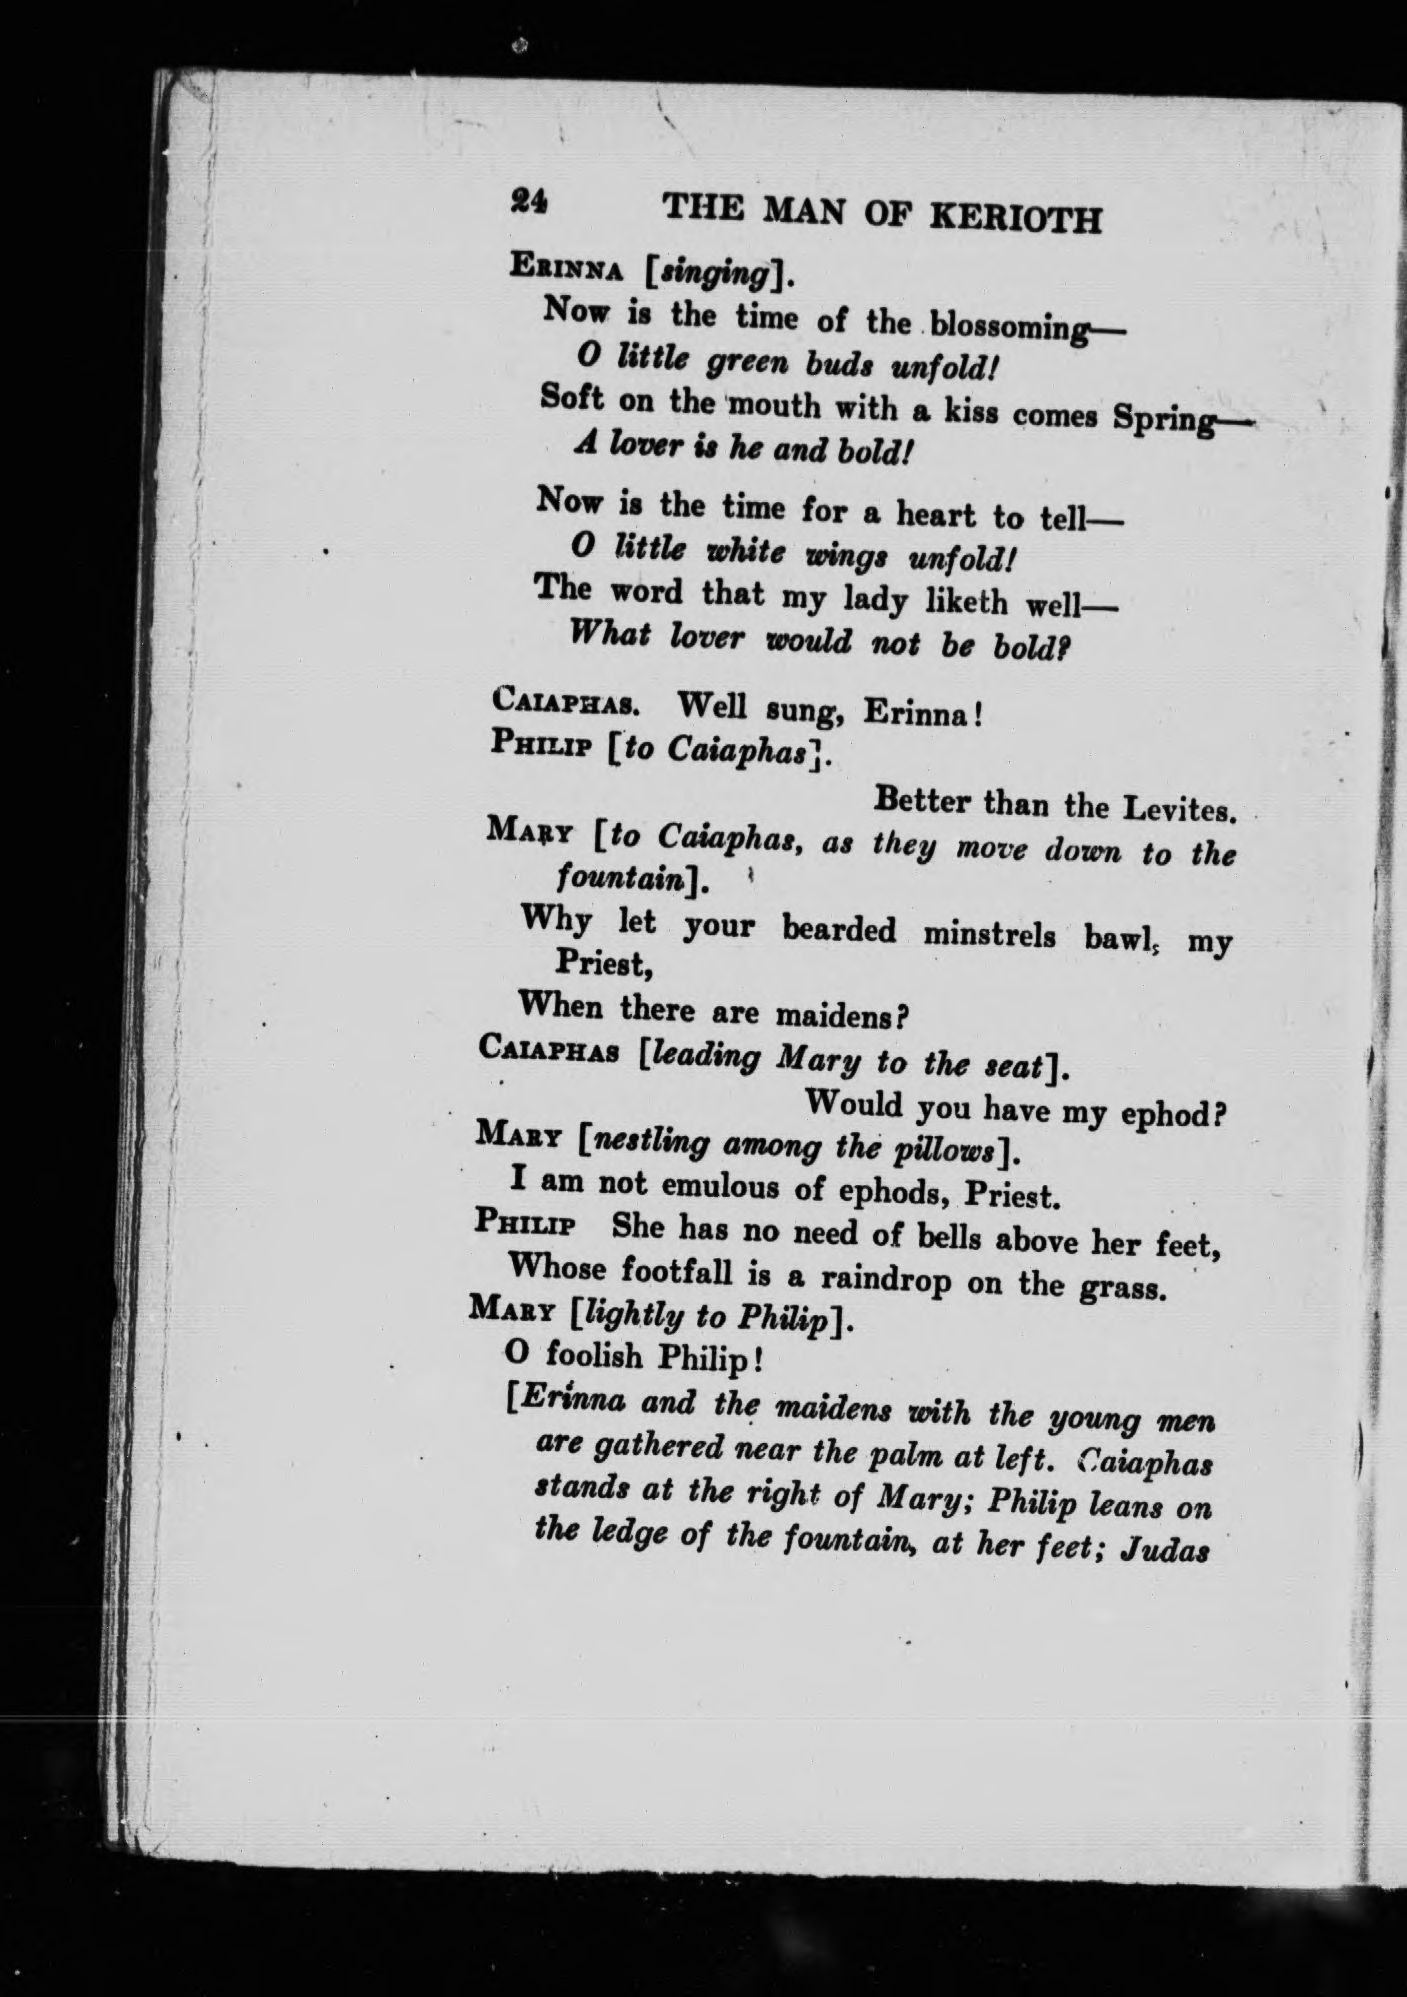 24 THE MAN OF KERIOTH
ERINNA [singing].
Now is the time of the blossoming—
O little green buds unfold!
Soft on the mouth with a kiss comes Spring—
A lover is he and bold!
Now is the time for a heart to tell—
O little white wings unfold!
The word that my lady liketh well—
What lover would not be bold?
CAIAPHAS. Well sung, Erinna!
PHILIP [to Caiaphas].
Better than the Levites.
MARY [to Caiaphas, as they move down to the
fountain].
Why let your bearded minstrels bawl, my
Priest,
When there are maidens?
CAIAPHAS [leading Mary to the seat].
Would you have my ephod?
MARY [nestling among the pillows].
I am not emulous of ephods, Priest.
PHILIP She has no need of bells above her feet,
Whose footfall is a raindrop on the grass.
MARY [lightly to Philip].
O foolish Philip!
[Erinna and the maidens with the young men
are gathered near the palm at left. Caiaphas
stands at the right of Mary; Philip leans on
the ledge of the fountain, at her feet; Judas